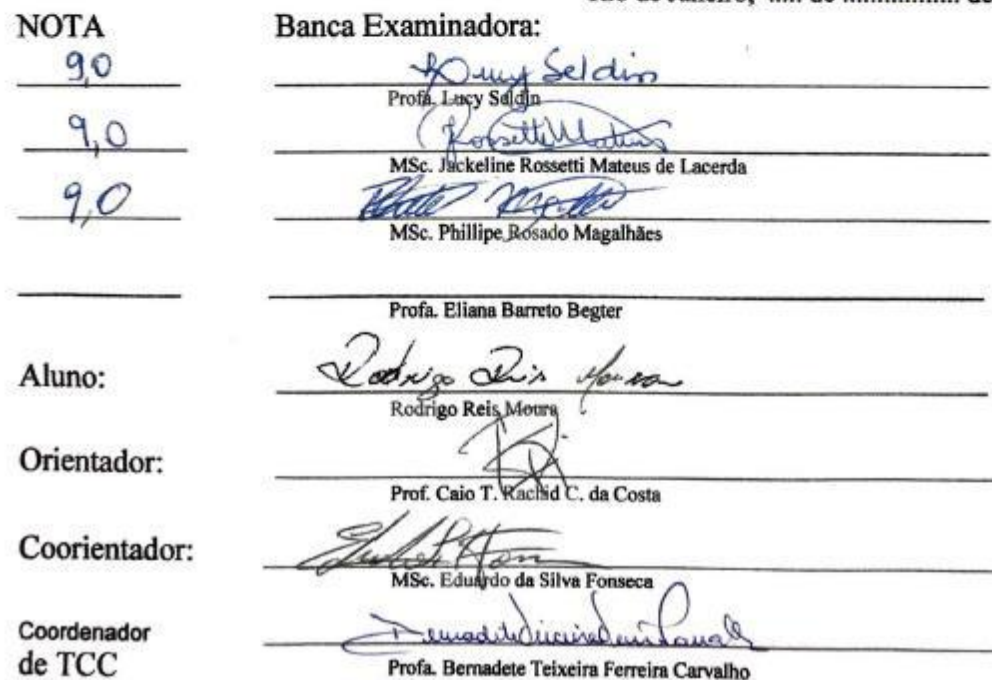 Rio de Janeiro, ..... de .................. de
NOTA Banca Examinadora:
9,0 Lucy Seldin
Profa. Lucy Seldin
9,0 Rossetti Mateus
MSc. Jackeline Rossetti Mateus de Lacerda
9,0
MSc. Phillipe Rosado Magalhães
Profa. Eliana Barreto Begter
Aluno: Rodrigo Reis Moura
Rodrigo Reis Moura
Orientador:
Prof. Caio T. Rachid C. da Costa
Coorientador:
MSc. Eduardo da Silva Fonseca
Coordenador
de TCC
Profa. Bernadete Teixeira Ferreira Carvalho